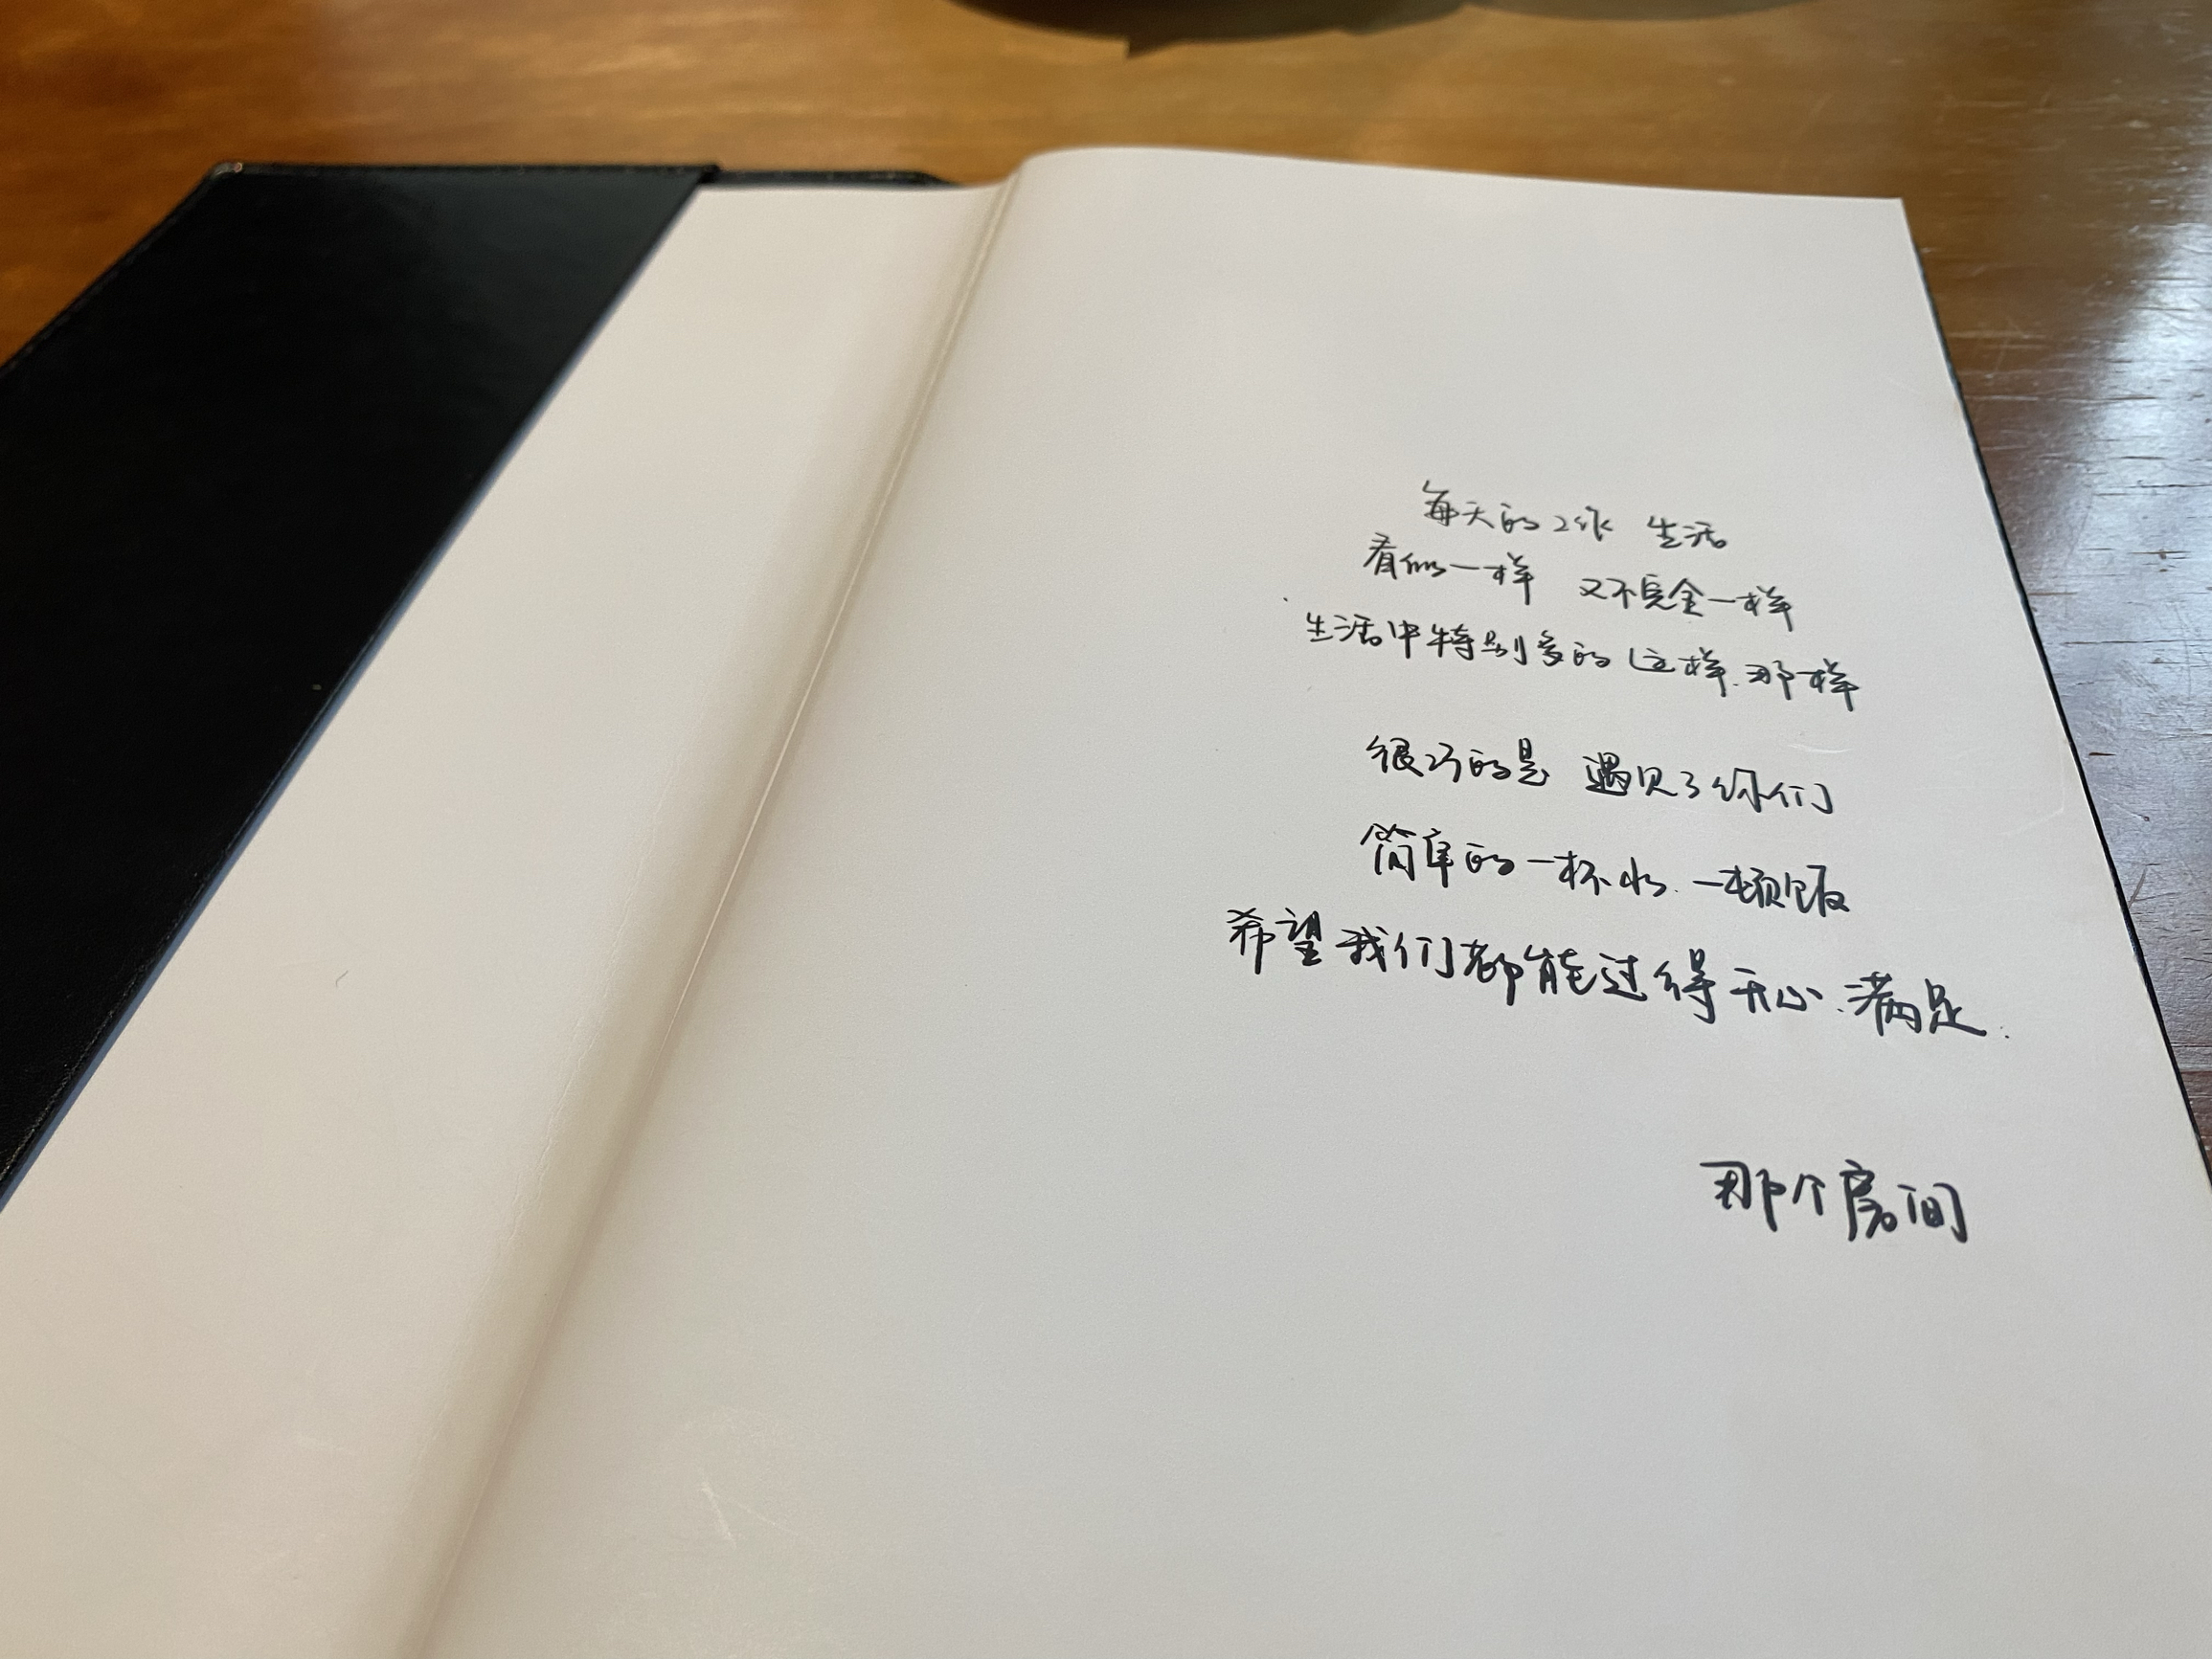 每天的工作 生活
看似一样 又不完全一样
生活中特别多的这样.那样
很巧的是 遇见了你们
简单的一杯水.一顿饭
希望我们都能过得开心.满足.
那个房间